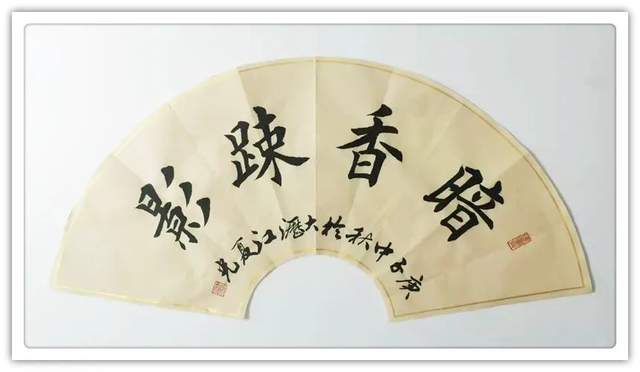 暗香踈影
庚子中秋於大潛江夏光